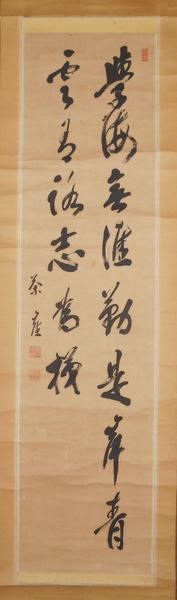 學海無涯勤是岸青
雲有路志為梯